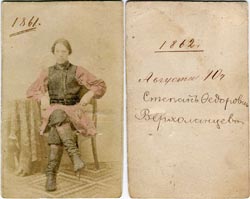 1861.
1862.
Августа 10
Степанъ Федоровичъ
Верхоланцевъ